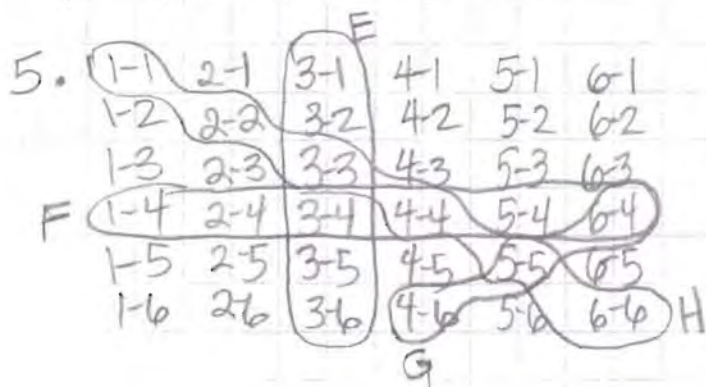 E
5. 1-1 2-1 3-1 4-1 5-1 6-1
1-2 2-2 3-2 4-2 5-2 6-2
1-3 2-3 3-3 4-3 5-3 6-3
F 1-4 2-4 3-4 4-4 5-4 6-4
1-5 2-5 3-5 4-5 5-5 6-5
1-6 2-6 3-6 4-6 5-6 6-6 H
G